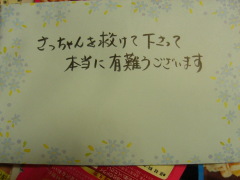 さっちゃんを救けて下さって
本当に有難うございます